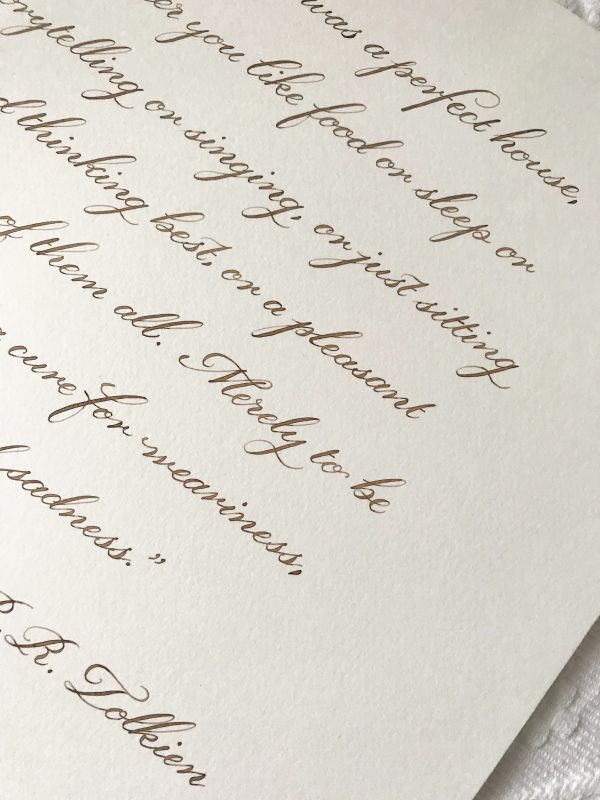 was a perfect house,
you like food or sleep or
storytelling or singing, or just sitting
thinking best, or a pleasant
of them all. Merely to be
cure for weariness,
sadness.”
R. Tolkien